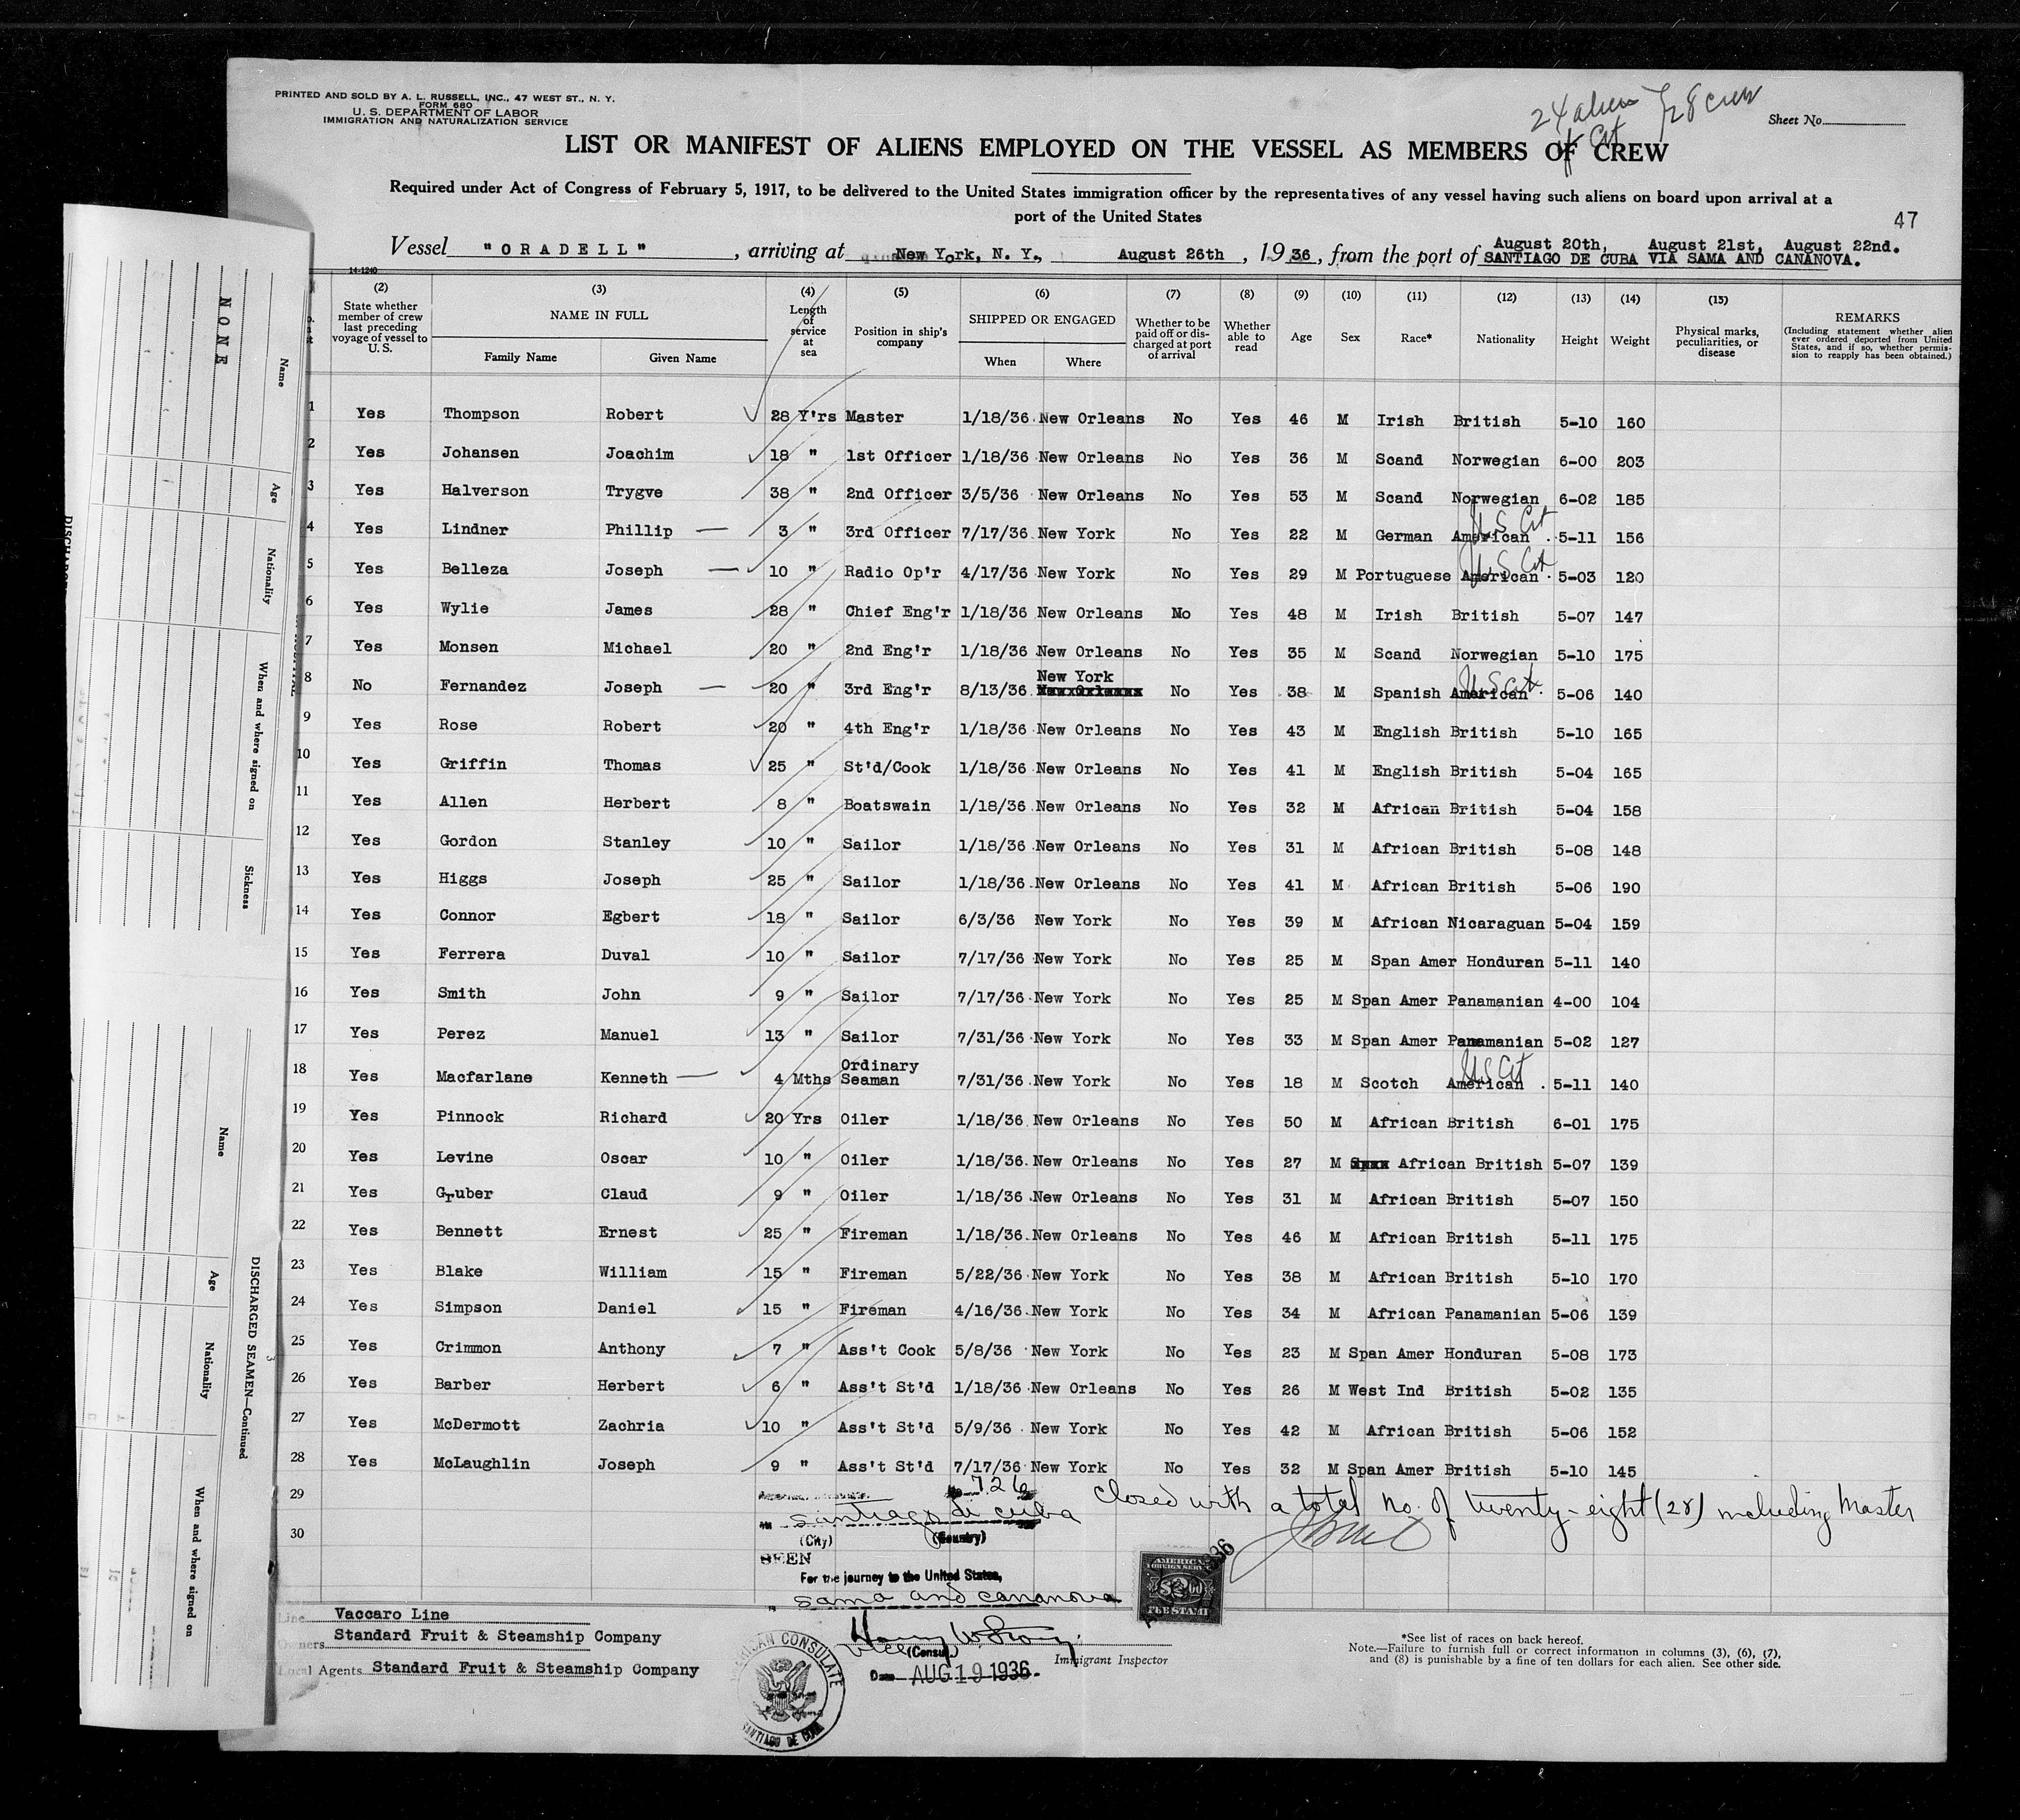 PRINTED AND SOLD BY A. L. RUSSELL, INC., 47 WEST ST., N. Y.
FORM 680
U. S. DEPARTMENT OF LABOR
IMMIGRATION AND NATURALIZATION SERVICE
24 aliens
28 crew
Sheet No.
LIST OR MANIFEST OF ALIENS EMPLOYED ON THE VESSEL AS MEMBERS OF CREW
Required under Act of Congress of February 5, 1917, to be delivered to the United States immigration officer by the representatives of any vessel having such aliens on board upon arrival at a
port of the United States
47
August 20th, August 21st, August 22nd.
Vessel "ORADELL", arriving at New York, N. Y., August 26th, 1936, from the port of SANTIAGO DE CUBA VIA SAMA AND CANANOVA.
14-1240
(2) (3) (4) (5) (6) (7) (8) (9) (10) (11) (12) (13) (14) (15)
State whether member of crew last preceding voyage of vessel to U. S.
NAME IN FULL
Family Name Given Name
Length of service at sea
Position in ship's company
SHIPPED OR ENGAGED
When Where
Whether to be paid off or discharged at port of arrival
Whether able to read
Age Sex Race* Nationality Height Weight
Physical marks, peculiarities, or disease
REMARKS
(Including statement whether alien ever ordered deported from United States, and if so, whether permission to reapply has been obtained.)
1 Yes Thompson Robert 28 Y'rs Master 1/18/36 New Orleans No Yes 46 M Irish British 5-10 160
2 Yes Johansen Joachim 18 " 1st Officer 1/18/36 New Orleans No Yes 36 M Scand Norwegian 6-00 203
3 Yes Halverson Trygve 38 " 2nd Officer 3/5/36 New Orleans No Yes 53 M Scand Norwegian 6-02 185
4 Yes Lindner Phillip — 3 " 3rd Officer 7/17/36 New York No Yes 22 M German American U.S. Cit 5-11 156
5 Yes Belleza Joseph — 10 " Radio Op'r 4/17/36 New York No Yes 29 M Portuguese American U.S. Cit 5-03 120
6 Yes Wylie James 28 " Chief Eng'r 1/18/36 New Orleans No Yes 48 M Irish British 5-07 147
7 Yes Monsen Michael 20 " 2nd Eng'r 1/18/36 New Orleans No Yes 35 M Scand Norwegian 5-10 175
8 No Fernandez Joseph — 20 " 3rd Eng'r 8/13/36 New York No Yes 38 M Spanish American U.S. Cit. 5-06 140
9 Yes Rose Robert 20 " 4th Eng'r 1/18/36 New Orleans No Yes 43 M English British 5-10 165
10 Yes Griffin Thomas 25 " St'd/Cook 1/18/36 New Orleans No Yes 41 M English British 5-04 165
11 Yes Allen Herbert 8 " Boatswain 1/18/36 New Orleans No Yes 32 M African British 5-04 158
12 Yes Gordon Stanley 10 " Sailor 1/18/36 New Orleans No Yes 31 M African British 5-08 148
13 Yes Higgs Joseph 25 " Sailor 1/18/36 New Orleans No Yes 41 M African British 5-06 190
14 Yes Connor Egbert 18 " Sailor 6/3/36 New York No Yes 39 M African Nicaraguan 5-04 159
15 Yes Ferrera Duval 10 " Sailor 7/17/36 New York No Yes 25 M Span Amer Honduran 5-11 140
16 Yes Smith John 9 " Sailor 7/17/36 New York No Yes 25 M Span Amer Panamanian 4-00 104
17 Yes Perez Manuel 13 " Sailor 7/31/36 New York No Yes 33 M Span Amer Panamanian 5-02 127
18 Yes Macfarlane Kenneth — 4 Mths Ordinary Seaman 7/31/36 New York No Yes 18 M Scotch American U.S. Cit 5-11 140
19 Yes Pinnock Richard 20 Yrs Oiler 1/18/36 New Orleans No Yes 50 M African British 6-01 175
20 Yes Levine Oscar 10 " Oiler 1/18/36 New Orleans No Yes 27 M African British 5-07 139
21 Yes Gruber Claud 9 " Oiler 1/18/36 New Orleans No Yes 31 M African British 5-07 150
22 Yes Bennett Ernest 25 " Fireman 1/18/36 New Orleans No Yes 46 M African British 5-11 175
23 Yes Blake William 15 " Fireman 5/22/36 New York No Yes 38 M African British 5-10 170
24 Yes Simpson Daniel 15 " Fireman 4/16/36 New York No Yes 34 M African Panamanian 5-06 139
25 Yes Crimmon Anthony 7 " Ass't Cook 5/8/36 New York No Yes 23 M Span Amer Honduran 5-08 173
26 Yes Barber Herbert 6 " Ass't St'd 1/18/36 New Orleans No Yes 26 M West Ind British 5-02 135
27 Yes McDermott Zachria 10 " Ass't St'd 5/9/36 New York No Yes 42 M African British 5-06 152
28 Yes McLaughlin Joseph 9 " Ass't St'd 7/17/36 New York No Yes 32 M Span Amer British 5-10 145
29
30
No. 726
Closed with a total no. of twenty-eight (28) including Master
Santiago di cuba
(City) (Country)
SEEN
For the journey to the United States,
Sama and cananova
Vice (Consul)
Date AUG 19 1936
Immigrant Inspector
AMERICAN CONSULATE
SANTIAGO DE CUBA
AMERICAN
FOREIGN SERVICE
FEE STAMP
Line Vaccaro Line
Owners Standard Fruit & Steamship Company
Local Agents Standard Fruit & Steamship Company
*See list of races on back hereof.
Note.—Failure to furnish full or correct information in columns (3), (6), (7),
and (8) is punishable by a fine of ten dollars for each alien. See other side.
NONE
Name
Age
Nationality
When and where signed on
Sickness
DISCHARGED SEAMEN—Continued
3
Name
Age
Nationality
When and where signed on